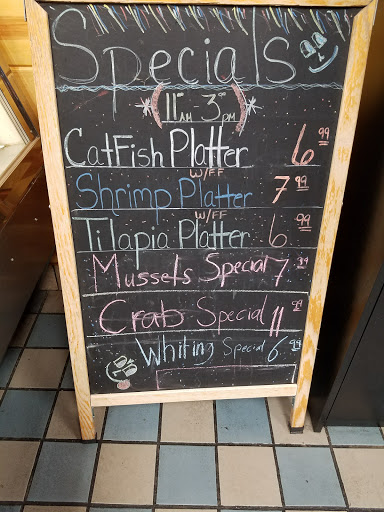 Specials
(11 AM 3 PM)
CatFish Platter 6.99
W/FF
Shrimp Platter 7.99
W/FF
Tilapia Platter 6.99
Mussels Special 7.99
Crab Special 11.99
Whiting Special 6.99